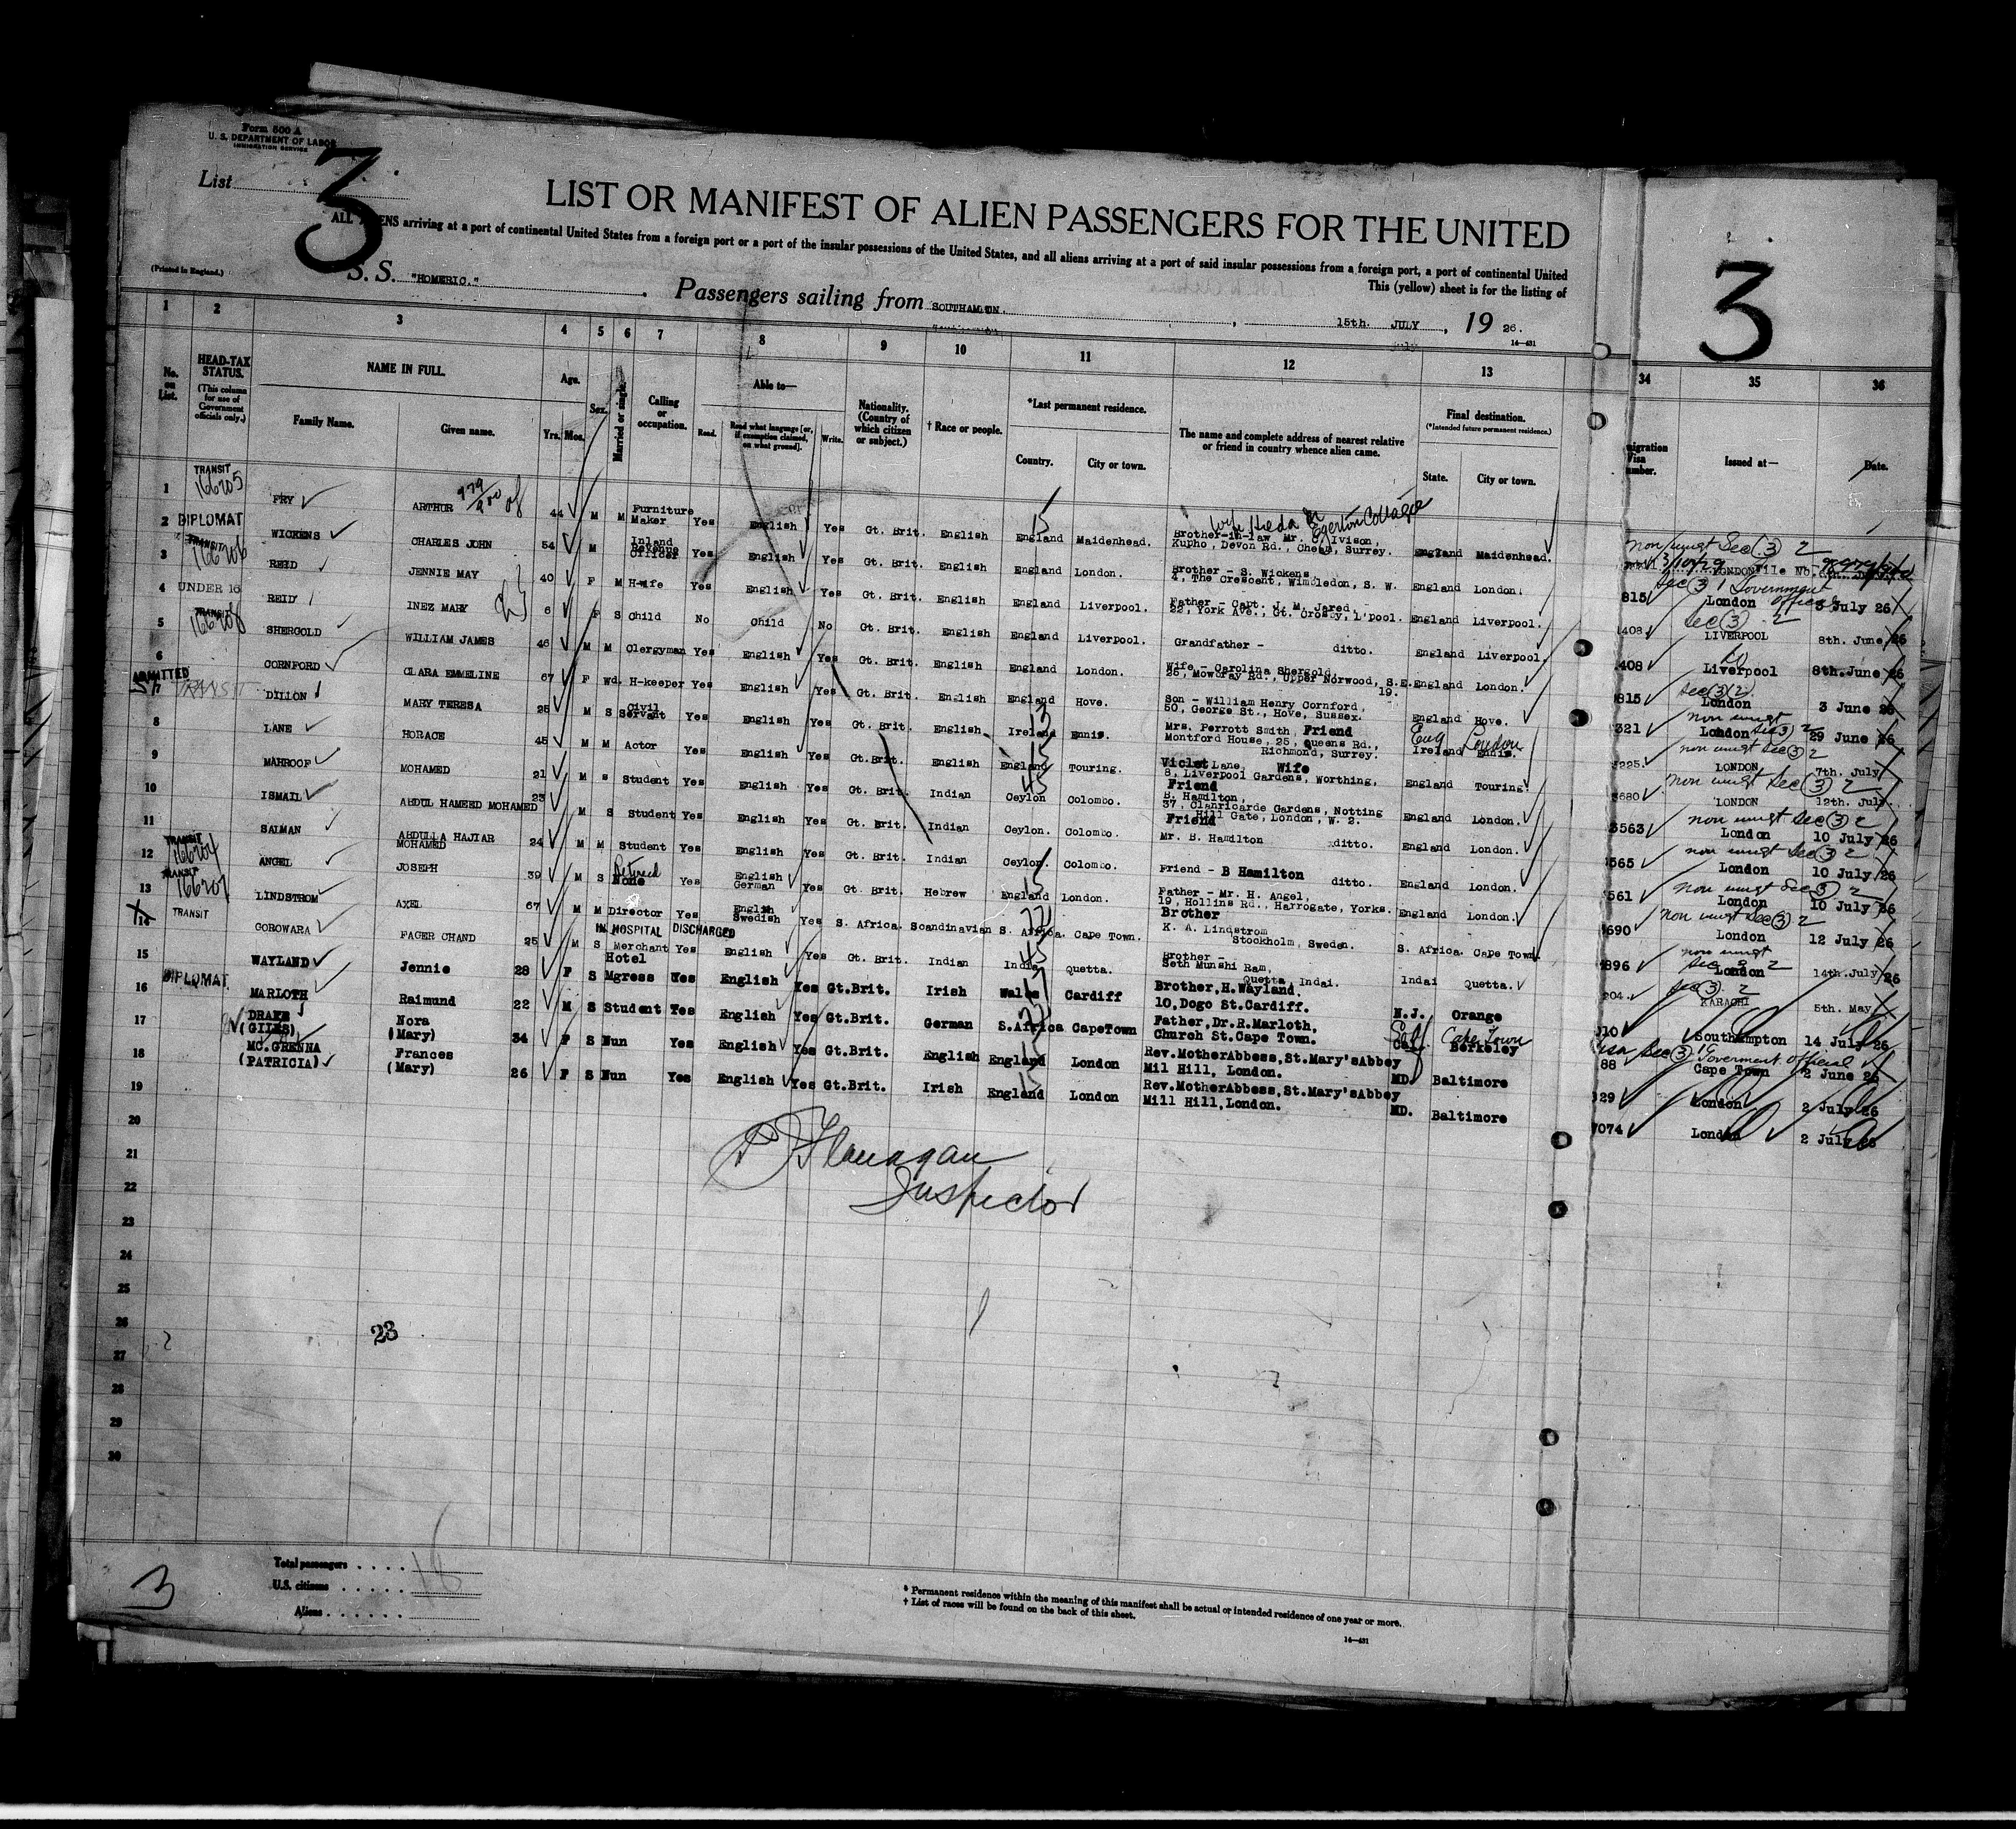 Form 500 A
U. S. DEPARTMENT OF LABOR
IMMIGRATION SERVICE
List
3
3
LIST OR MANIFEST OF ALIEN PASSENGERS FOR THE UNITED
ALL ALIENS arriving at a port of continental United States from a foreign port or a port of the insular possessions of the United States, and all aliens arriving at a port of said insular possessions from a foreign port, a port of continental United
This (yellow) sheet is for the listing of
(Printed in England.)
S. S. "HOMERIC." Passengers sailing from SOUTHAMPTON. , 15th. JULY , 19 26.
14—431
1 2 3 4 5 6 7 8 9 10 11 12 13 34 35 36
No. on List.
HEAD-TAX STATUS.
(This column for use of Government officials only.)
NAME IN FULL.
Family Name. Given name.
Age.
Yrs. Mos.
Sex.
Married or single.
Calling or occupation.
Able to—
Read. Read what language [or, if exemption claimed, on what ground]. Write.
Nationality. (Country of which citizen or subject.)
† Race or people.
*Last permanent residence.
Country. City or town.
The name and complete address of nearest relative or friend in country whence alien came.
Final destination.
(*Intended future permanent residence.)
State. City or town.
migration Visa umber.
Issued at—
Date.
1 TRANSIT 166205 FRY ARTHUR 44 M M Furniture Maker Yes English Yes Gt. Brit. English England Maidenhead. Brother-in-law Mr. C. Ivison, Kupho, Devon Rd., Cheam, Surrey. England Maidenhead.
wife Hilda Egerton Cottage
2 DIPLOMAT WICKENS CHARLES JOHN 54 M Inland Revenue Officer Yes English Yes Gt. Brit. English England London. Brother - S. Wickens, 4, The Crescent, Wimbledon, S. W. England London.
3 TRANSIT 166206 REID JENNIE MAY 40 F M H-wife Yes English Yes Gt. Brit. English England Liverpool. Father - Capt. J. M. Jared, 22, York Ave., Gt. Crosby, L'pool. England Liverpool.
4 UNDER 16 REID INEZ MARY 6 F S Child No Child No Gt. Brit. English England Liverpool. Grandfather - ditto. England Liverpool.
5 TRANSIT 166208 SHERGOLD WILLIAM JAMES 46 M M Clergyman Yes English Yes Gt. Brit. English England London. Wife - Carolina Shergold, 26, Mowbray Rd., Upper Norwood, S.E. 19. England London.
6 CORNFORD CLARA EMMELINE 67 F Wd. H-keeper Yes English Yes Gt. Brit. English England Hove. Son - William Henry Cornford, 50, George St., Hove, Sussex. England Hove.
ADMITTED TRANSIT DILLON MARY TERESA 25 M S Civil Servant Yes English Yes Gt. Brit. English Ireland Ennis. Mrs. Perrott Smith, Friend Montford House, 25, Queens Rd., Richmond, Surrey. Ireland Ennis.
Eng London
8 LANE HORACE 45 M M Actor Yes English Yes Gt.Brit. English England Touring. Violet Lane, Wife 8, Liverpool Gardens, Worthing, England Touring.
9 MAHROOF MOHAMED 21 M S Student Yes English Yes Gt. Brit. Indian Ceylon Colombo. Friend B. Hamilton, 37, Clanricarde Gardens, Notting Hill Gate, London, W. 2. England London.
10 ISMAIL ABDUL HAMEED MOHAMED 23 M S Student Yes English Yes Gt. Brit. Indian Ceylon. Colombo. Friend Mr. B. Hamilton ditto. England London.
11 SAIMAN ABDULLA HAJIAR MOHAMED 24 M M Student Yes English Yes Gt. Brit. Indian Ceylon. Colombo. Friend - B Hamilton ditto. England London.
12 TRANSIT 166204 ANGEL JOSEPH 39 M S Retired None Yes English German Yes Gt. Brit. Hebrew England London. Father - Mr. H. Angel, 19, Hollins Rd., Harrogate, Yorks. England London.
13 TRANSIT 166207 LINDSTROM AXEL 67 M M Director Yes English Swedish Yes S. Africa. Scandinavian S. Africa. Cape Town. Brother K. A. Lindstrom Stockholm, Sweden. S. Africa. Cape Town.
IN HOSPITAL DISCHARGED
14 TRANSIT COROWARA FAGER CHAND 25 M S Merchant Yes English Yes Gt. Brit. Indian India Quetta. Brother - Seth Munshi Ram, Quetta, Indai. Indai Quetta.
15 WAYLAND Jennie 28 F S Hotel Mgress Yes English Yes Gt.Brit. Irish Wales Cardiff Brother,H.Wayland, 10,Dogo St.Cardiff. N.J. Orange
16 DIPLOMAT MARLOTH Raimund 22 M S Student Yes English Yes Gt.Brit. German S.Africa CapeTown Father,Dr.R.Marloth, Church St.Cape Town. Cal Berkeley
Cape Town
17 DRAKE (GILES) Nora (Mary) 34 F S Nun Yes English Yes Gt.Brit. English England London Rev.MotherAbbess,St.Mary'sAbbey Mil Hill, London. MD. Baltimore
18 MC.GRENNA (PATRICIA) Frances (Mary) 26 F S Nun Yes English Yes Gt.Brit. Irish England London Rev.MotherAbbess,St.Mary'sAbbey Mill Hill,London. MD. Baltimore
non immgt Sec (3) 2
LONDON File No.
Sec (3) 1 Government official
815 London 3 July 26
Sec (3) 2
408 LIVERPOOL 8th. June 26
do
408 Liverpool 8th.June 26
Sec (3) 2
815 London 3 June 26
non immgt Sec (3) 2
321 London 29 June 26
non immgt Sec (3) 2
225. LONDON 7th. July
non immgt Sec (3) 2
3680 LONDON 12th. July.
non immgt Sec (3) 2
3563 London 10 July 26
non immgt Sec (3) 2
565 London 10 July 26
non immgt Sec (3) 2
561 London 10 July 26
non immgt Sec (3) 2
690 London 12 July 26
non immgt Sec 3 2
896 London 14th.July 26
Sec (3) 2
204. KARACHI 5th. May
310 Southampton 14 July 26
Sec (3) Goverment official
88 Cape Town 2 June 26
329 London 2 July 26
7074 London 2 July 26
19
20
21
22
23
24
25
26
27
28
29
30
P Flanagan
Inspector
23
3
Total passengers . . . . 18
U.S. citizens . . . . .
Aliens . . . . . .
* Permanent residence within the meaning of this manifest shall be actual or intended residence of one year or more.
† List of races will be found on the back of this sheet.
14—431